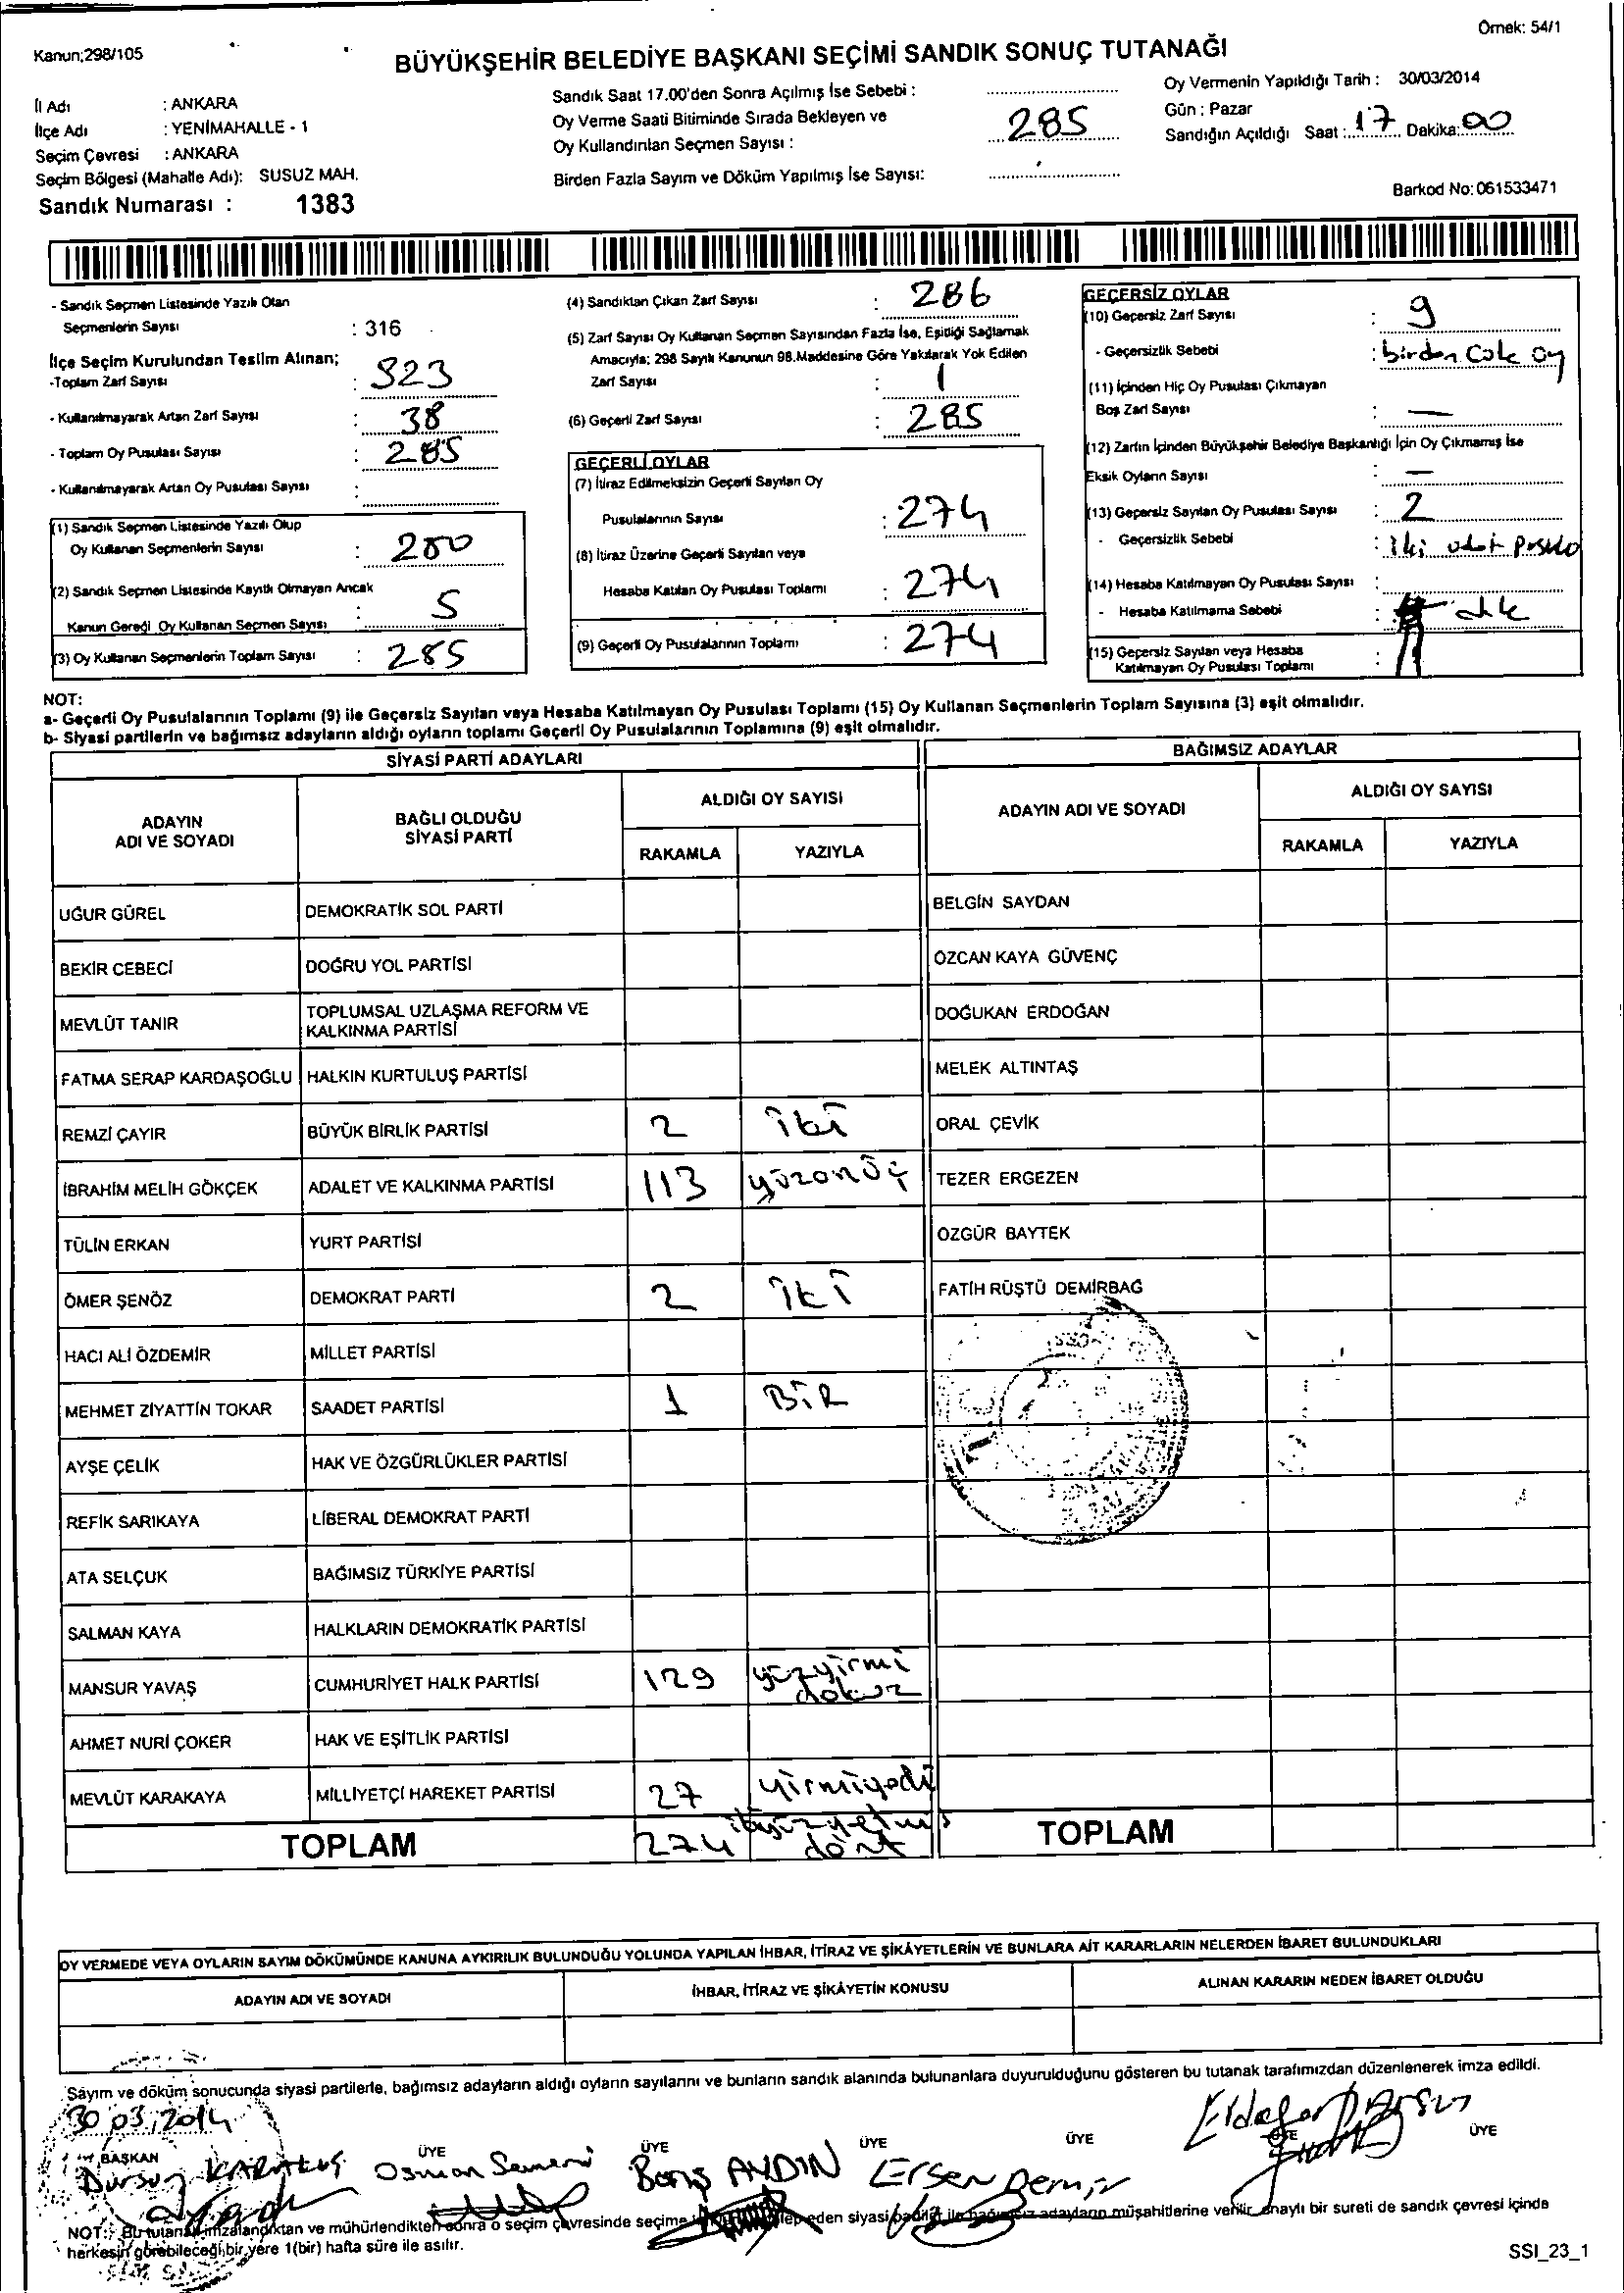 Örnek: 54/1
Kanun;298/105
BÜYÜKŞEHİR BELEDİYE BAŞKANI SEÇİMİ SANDIK SONUÇ TUTANAĞI
İl Adı : ANKARA
İlçe Adı : YENİMAHALLE - 1
Seçim Çevresi : ANKARA
Seçim Bölgesi (Mahalle Adı): SUSUZ MAH.
Sandık Numarası : 1383
Sandık Saat 17.00'den Sonra Açılmış İse Sebebi :
Oy Verme Saati Bitiminde Sırada Bekleyen ve
Oy Kullandırılan Seçmen Sayısı : 285
Birden Fazla Sayım ve Döküm Yapılmış İse Sayısı:
Oy Vermenin Yapıldığı Tarih : 30/03/2014
Gün : Pazar
Sandığın Açıldığı Saat : 17 Dakika: 00
Barkod No: 061533471
- Sandık Seçmen Listesinde Yazılı Olan
Seçmenlerin Sayısı : 316
İlçe Seçim Kurulundan Teslim Alınan;
-Toplam Zarf Sayısı : 323
- Kullanılmayarak Artan Zarf Sayısı : 38
- Toplam Oy Pusulası Sayısı : 285
- Kullanılmayarak Artan Oy Pusulası Sayısı :
(1) Sandık Seçmen Listesinde Yazılı Olup
Oy Kullanan Seçmenlerin Sayısı : 280
(2) Sandık Seçmen Listesinde Kayıtlı Olmayan Ancak
Kanun Gereği Oy Kullanan Seçmen Sayısı : 5
(3) Oy Kullanan Seçmenlerin Toplam Sayısı : 285
(4) Sandıktan Çıkan Zarf Sayısı : 286
(5) Zarf Sayısı Oy Kullanan Seçmen Sayısından Fazla İse, Eşitliği Sağlamak
Amacıyla; 298 Sayılı Kanunun 98.Maddesine Göre Yakılarak Yok Edilen
Zarf Sayısı : 1
(6) Geçerli Zarf Sayısı : 285
GEÇERLİ OYLAR
(7) İtiraz Edilmeksizin Geçerli Sayılan Oy
Pusulalarının Sayısı : 274
(8) İtiraz Üzerine Geçerli Sayılan veya
Hesaba Katılan Oy Pusulası Toplamı : 274
(9) Geçerli Oy Pusulalarının Toplamı : 274
GEÇERSİZ OYLAR
(10) Geçersiz Zarf Sayısı : 9
- Geçersizlik Sebebi : birden Çok oy
(11) İçinden Hiç Oy Pusulası Çıkmayan
Boş Zarf Sayısı : —
(12) Zarfın İçinden Büyükşehir Belediye Başkanlığı İçin Oy Çıkmamış İse
Eksik Oyların Sayısı : —
(13) Geçersiz Sayılan Oy Pusulası Sayısı : 2
- Geçersizlik Sebebi : iki adet
(14) Hesaba Katılmayan Oy Pusulası Sayısı :
- Hesaba Katılmama Sebebi :
(15) Geçersiz Sayılan veya Hesaba
Katılmayan Oy Pusulası Toplamı :
NOT:
a- Geçerli Oy Pusulalarının Toplamı (9) ile Geçersiz Sayılan veya Hesaba Katılmayan Oy Pusulası Toplamı (15) Oy Kullanan Seçmenlerin Toplam Sayısına (3) eşit olmalıdır.
b- Siyasi partilerin ve bağımsız adayların aldığı oyların toplamı Geçerli Oy Pusulalarının Toplamına (9) eşit olmalıdır.
SİYASİ PARTİ ADAYLARI
BAĞIMSIZ ADAYLAR
ADAYIN
ADI VE SOYADI
BAĞLI OLDUĞU
SİYASİ PARTİ
ALDIĞI OY SAYISI
RAKAMLA YAZIYLA
ADAYIN ADI VE SOYADI
ALDIĞI OY SAYISI
RAKAMLA YAZIYLA
UĞUR GÜREL DEMOKRATİK SOL PARTİ BELGİN SAYDAN
BEKİR CEBECİ DOĞRU YOL PARTİSİ ÖZCAN KAYA GÜVENÇ
MEVLÜT TANIR TOPLUMSAL UZLAŞMA REFORM VE
KALKINMA PARTİSİ DOĞUKAN ERDOĞAN
FATMA SERAP KARDAŞOĞLU HALKIN KURTULUŞ PARTİSİ MELEK ALTINTAŞ
REMZİ ÇAYIR BÜYÜK BİRLİK PARTİSİ 2 iki ORAL ÇEVİK
İBRAHİM MELİH GÖKÇEK ADALET VE KALKINMA PARTİSİ 113 yüzonüç TEZER ERGEZEN
TÜLİN ERKAN YURT PARTİSİ ÖZGÜR BAYTEK
ÖMER ŞENÖZ DEMOKRAT PARTİ 2 iki FATİH RÜŞTÜ DEMİRBAĞ
HACI ALİ ÖZDEMİR MİLLET PARTİSİ
MEHMET ZİYATTİN TOKAR SAADET PARTİSİ 1 BİR
AYŞE ÇELİK HAK VE ÖZGÜRLÜKLER PARTİSİ
REFİK SARIKAYA LİBERAL DEMOKRAT PARTİ
ATA SELÇUK BAĞIMSIZ TÜRKİYE PARTİSİ
SALMAN KAYA HALKLARIN DEMOKRATİK PARTİSİ
MANSUR YAVAŞ CUMHURİYET HALK PARTİSİ 129 yüzyirmi
dokuz
AHMET NURİ ÇOKER HAK VE EŞİTLİK PARTİSİ
MEVLÜT KARAKAYA MİLLİYETÇİ HAREKET PARTİSİ 27 yirmiyedi
TOPLAM 274 ikiyüzyetmiş
dört TOPLAM
OY VERMEDE VEYA OYLARIN SAYIM DÖKÜMÜNDE KANUNA AYKIRILIK BULUNDUĞU YOLUNDA YAPILAN İHBAR, İTİRAZ VE ŞİKÂYETLERİN VE BUNLARA AİT KARARLARIN NELERDEN İBARET BULUNDUKLARI
ADAYIN ADI VE SOYADI İHBAR, İTİRAZ VE ŞİKÂYETİN KONUSU ALINAN KARARIN NEDEN İBARET OLDUĞU
Sayım ve döküm sonucunda siyasi partilerle, bağımsız adayların aldığı oyların sayılarını ve bunların sandık alanında bulunanlara duyurulduğunu gösteren bu tutanak tarafımızdan düzenlenerek imza edildi.
30.03.2014
BAŞKAN ÜYE ÜYE ÜYE ÜYE ÜYE ÜYE
Dursun KARAKUŞ Osman Barış AYDIN Ersen Demir
NOT: Bu tutanak imzalandıktan ve mühürlendikten sonra o seçim çevresinde seçime eden siyasi partiler ile bağımsız adayların müşahitlerine verilir, onaylı bir sureti de sandık çevresi içinde
herkesin görebileceği bir yere 1(bir) hafta süre ile asılır.
SSI_23_1